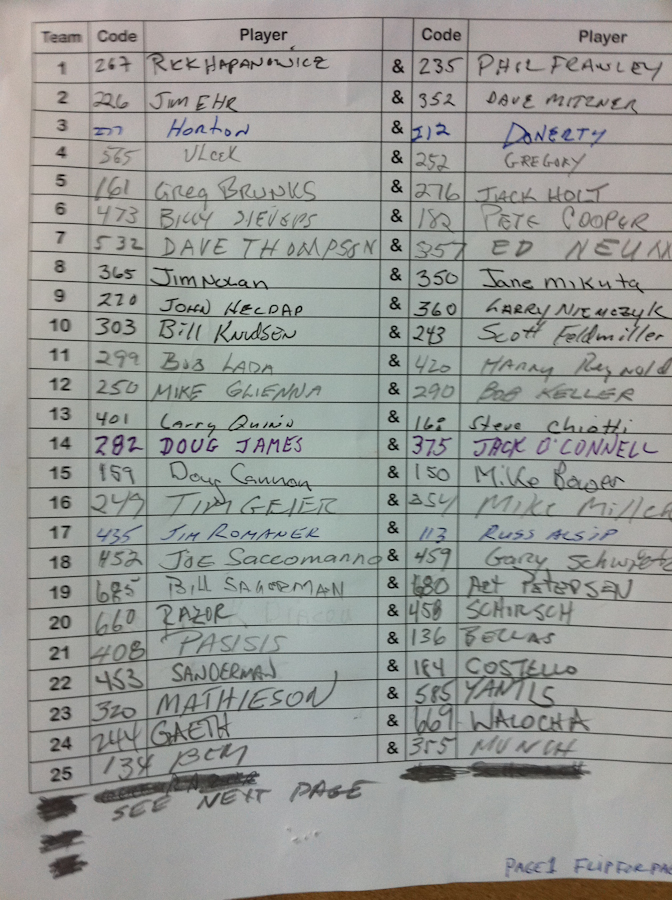 Team Code Player Code Player
1 267 RICK HAPANOWICZ & 235 PHIL FRAWLEY
2 226 JIM EHR & 352 DAVE MITZNER
3 Horton & 212 DOHERTY
4 565 VLCEK & 252 GREGORY
5 161 Greg BRUNKS & 276 JACK HOLT
6 473 BILLY SIEVERS & 182 PETE COOPER
7 532 DAVE THOMPSON & 357 ED
8 365 Jim Nolan & 350 Jane Mikuta
9 220 JOHN & 360 LARRY NIEMCZYK
10 303 Bill KNUDSEN & 243 Scott Feldmiller
11 299 BOB LADA & 420 HARRY Reynold
12 250 MIKE GLIENNA & 290 BOB KELLER
13 401 Larry Quinn & Steve Chiotti
14 282 DOUG JAMES & 375 JACK O'CONNELL
15 159 Doug Cannon & 150 Mike Bower
16 249 TIM GEIER & 354 Mike
17 435 JIM ROMANEK & 113 RUSS ALSIP
18 452 JOE Saccomanno & 459 Gary
19 685 Bill SAGERMAN & 680 Art PETERSEN
20 660 RAZOR & 458 SCHIRSCH
21 408 PASISIS & 136 BELLAS
22 453 SANDERMAN & 184 COSTELLO
23 320 MATHIESON & 585 YANTIS
24 244 GAETH & 669 WALOCHA
25 134 & 355 MUNCH
SEE NEXT PAGE
PAGE 1 FLIP FOR